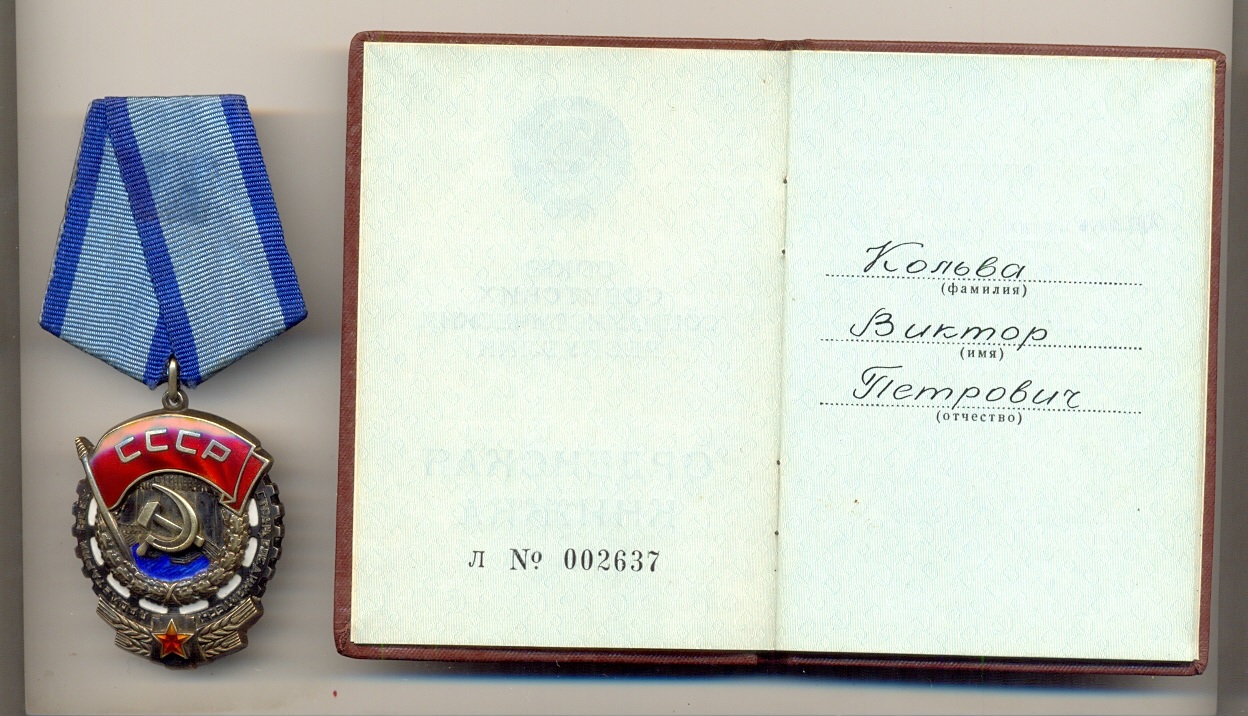 СССР
Л № 002637
Кольва
(фамилия)
Виктор
(имя)
Петрович
(отчество)